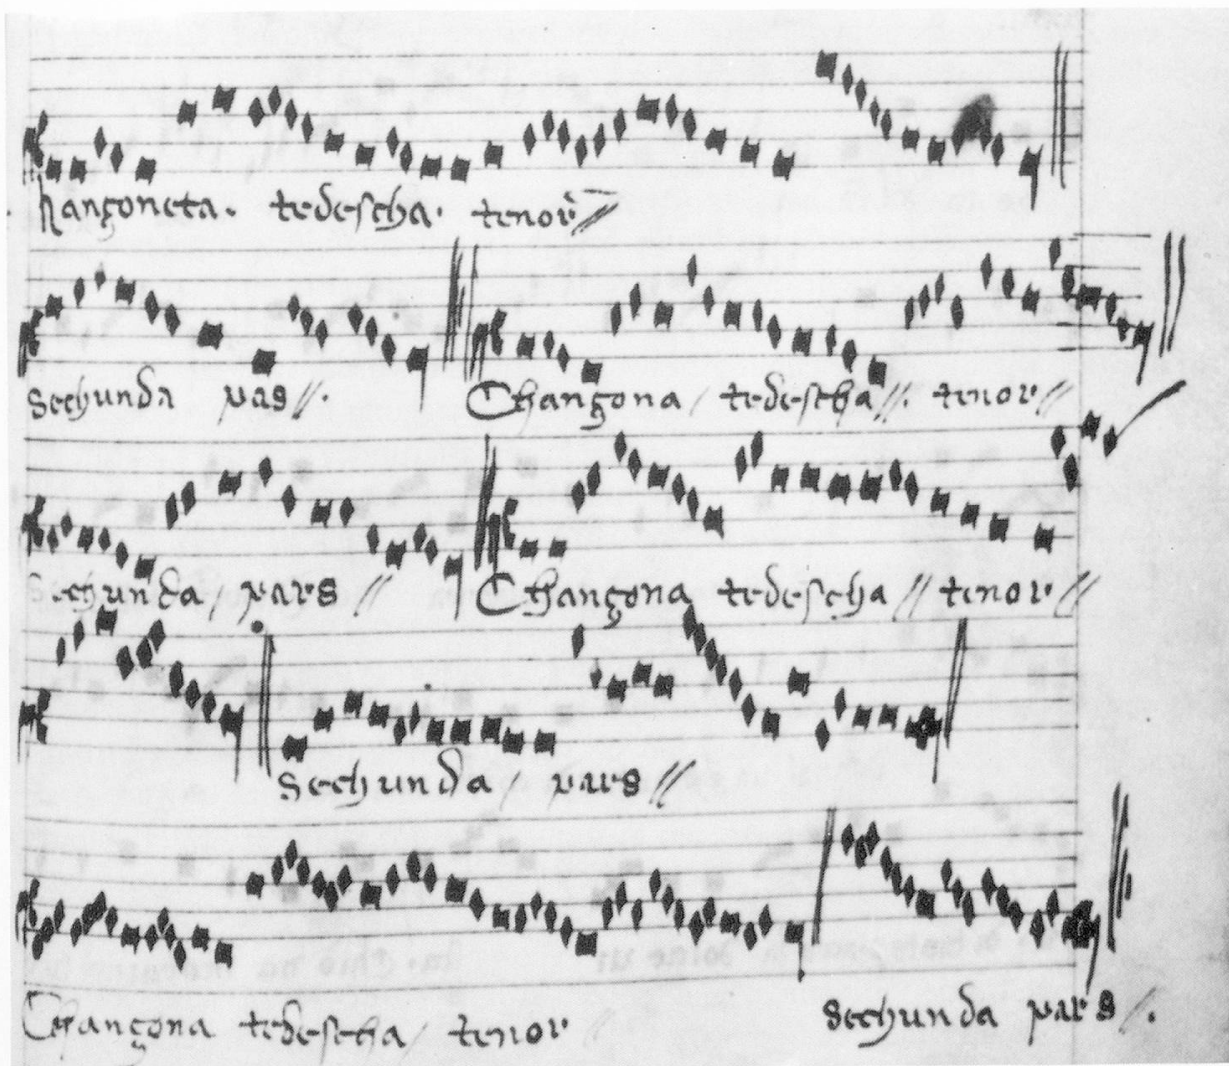 hançoneta. tedescha. tenor̄//
Sechunda pas//. Chançona / tedescha//. tenor//
Sechunda / pars // Chançona tedescha // tenor //
Sechunda / pars //
Chançona tedescha / tenor sechunda pars //.